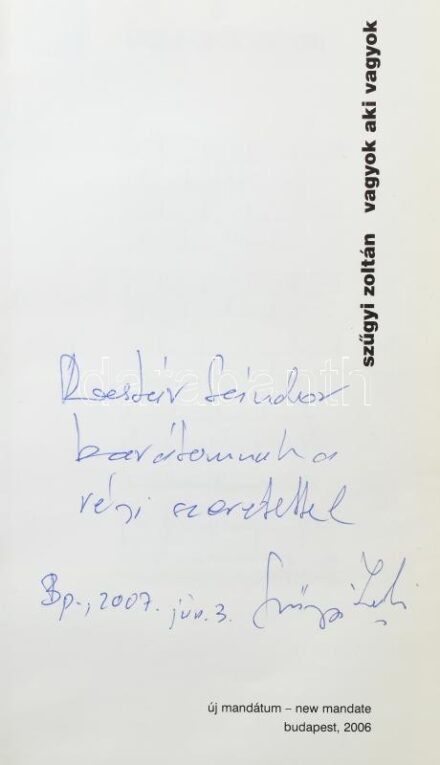 szűgyi zoltán vagyok aki vagyok
Sándor
barátomnak a
régi szeretettel
Bp., 2007. jún. 3. Szűgyi Zoli
új mandátum – new mandate
budapest, 2006